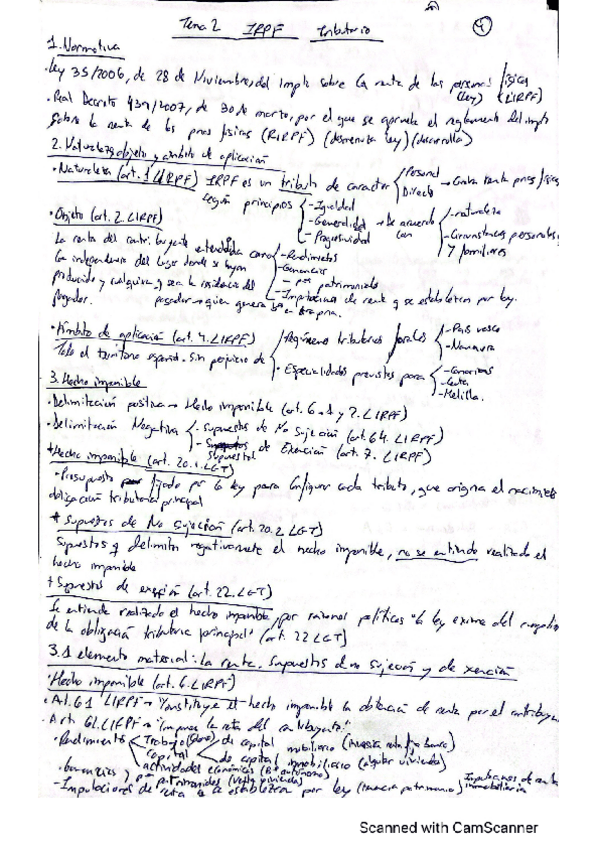 Tema 2 IRPF Tributario
1. Normativa
· Ley 35/2006, de 28 de Noviembre, del impto sobre la renta de las personas físicas
(Ley) (LIRPF)
· Real Decreto 439/2007, de 30 de marzo, por el que se aprueba el reglamento del impto
sobre la renta de las pnas físicas (RIRPF) (desarrolla)
2. Naturaleza, objeto y ámbito de aplicación
· Naturaleza (art. 1 LIRPF) IRPF es un tributo de carácter Personal
Directo → Grava renta pnas físicas
según principios - Igualdad
- Generalidad → De acuerdo con - naturaleza
- Progresividad - Circunstancias personales
y familiares
· Objeto (art. 2. LIRPF)
La renta del contribuyente entendida como - Rendimientos
con independencia del lugar donde se hayan - Ganancias
producido y cualquiera q sea la residencia del - patrimoniales
pagador. - Imputaciones de renta q se establecen por ley.
pagador → quien genera
· Ámbito de aplicación (art. 4. LIRPF) Regímenes tributarios forales - País vasco
- Navarra
Todo el territorio español. Sin perjuicio de
· Especialidades previstas para - Canarias
- Ceuta
- Melilla.
3. Hecho imponible
· Delimitación positiva → Hecho imponible (art. 6.1 y 2. LIRPF)
· Delimitación Negativa - supuestos de No Sujeción (art. 6.4. LIRPF)
- supuestos de Exención (art. 7. LIRPF)
* Hecho imponible (art. 20.1. LGT)
· Presupuesto fijado por la ley para configurar cada tributo, que origina el nacimiento
obligación tributaria principal
* Supuestos de No Sujeción (art. 20.2 LGT)
Supuestos q delimita negativamente el hecho imponible, no se entiende realizado el
hecho imponible
* Supuestos de exención (art. 22. LGT)
Se entiende realizado el hecho imponible, por razones políticas "la ley exime del cumplimiento
de la obligación tributaria principal" (art. 22 LGT)
3.1 elemento material: la renta. Supuestos de no sujeción y de exención
· Hecho imponible (art. 6. LIRPF)
· Art. 6.1 LIRPF → "Constituye el hecho imponible la obtención de renta por el contribuyente
· Art. 6.2. LIRPF → "Compone la renta del contribuyente"
· Rendimiento Trabajo
capital de capital mobiliario
de capital inmobiliario (alquilar vivienda)
actividades económicas (autónomo)
· Ganancias y patrimoniales
- Imputaciones de renta q se establezcan por ley Imputaciones de renta
inmobiliaria
Scanned with CamScanner